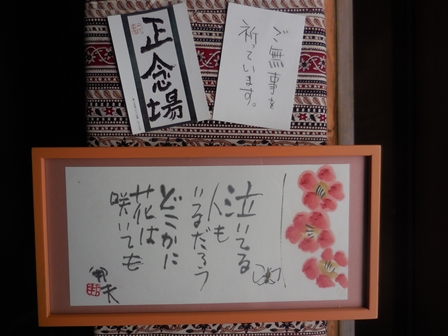 正念場
ご無事を
祈っています。
泣いてる
人も
いるだろう
どこかに
花は
咲いても